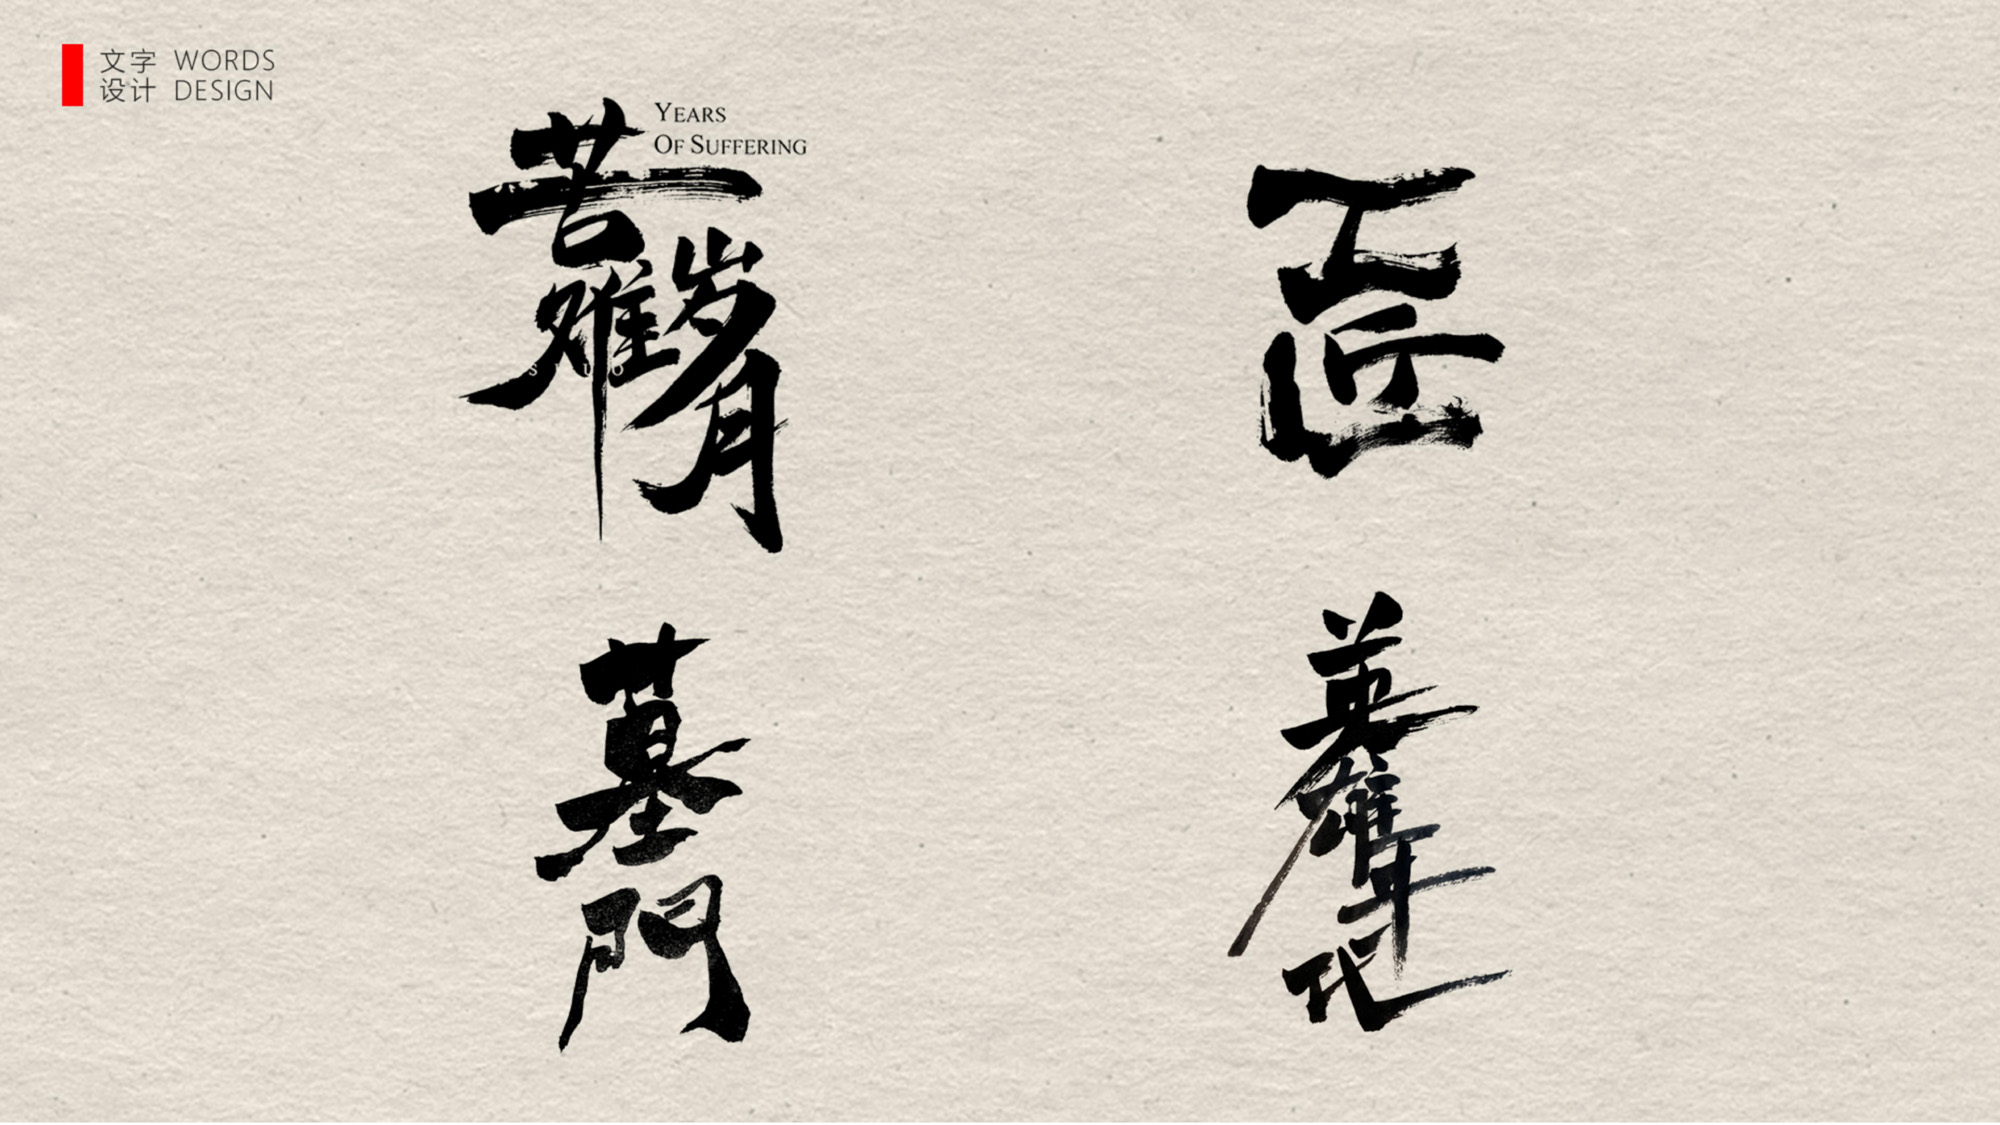 文字 WORDS
设计 DESIGN
苦难岁月
YEARS
OF SUFFERING
工匠
墓門
英雄年代